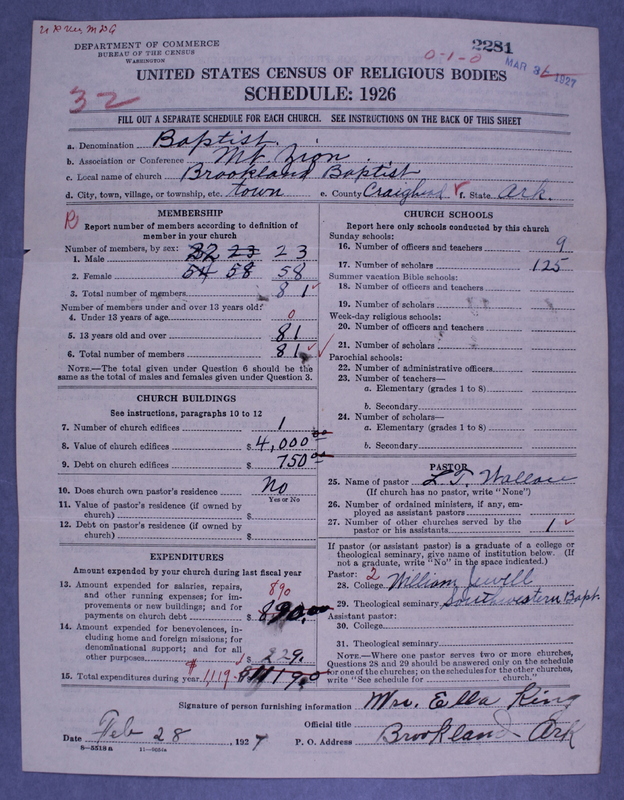 2281
DEPARTMENT OF COMMERCE
BUREAU OF THE CENSUS
WASHINGTON
0-1-0
MAR 1927
UNITED STATES CENSUS OF RELIGIOUS BODIES
32
SCHEDULE: 1926
FILL OUT A SEPARATE SCHEDULE FOR EACH CHURCH. SEE INSTRUCTIONS ON THE BACK OF THIS SHEET
a. Denomination Baptist
b. Association or Conference Mt. Zion
c. Local name of church Brookland Baptist
d. City, town, village, or township, etc. town e. County Craighead f. State Ark.
MEMBERSHIP
Report number of members according to definition of
member in your church
Number of members, by sex:
1. Male 22 23 23
2. Female 54 58 58
3. Total number of members 81
Number of members under and over 13 years old:
4. Under 13 years of age 0
5. 13 years old and over 81
6. Total number of members 81
NOTE.—The total given under Question 6 should be the
same as the total of males and females given under Question 3.
CHURCH BUILDINGS
See instructions, paragraphs 10 to 12
7. Number of church edifices 1
8. Value of church edifices $ 4,000 00
9. Debt on church edifices $ 750 00
10. Does church own pastor's residence No
Yes or No
11. Value of pastor's residence (if owned by
church) $
12. Debt on pastor's residence (if owned by
church) $
EXPENDITURES
Amount expended by your church during last fiscal year
13. Amount expended for salaries, repairs, 890
and other running expenses; for im-
provements or new buildings; and for
payments on church debt $ 890.00
14. Amount expended for benevolences, in-
cluding home and foreign missions; for
denominational support; and for all
other purposes $ 229.
15. Total expenditures during year $ 1,119
CHURCH SCHOOLS
Report here only schools conducted by this church
Sunday schools:
16. Number of officers and teachers 9
17. Number of scholars 125
Summer vacation Bible schools:
18. Number of officers and teachers
19. Number of scholars
Week-day religious schools:
20. Number of officers and teachers
21. Number of scholars
Parochial schools:
22. Number of administrative officers
23. Number of teachers—
a. Elementary (grades 1 to 8)
b. Secondary
24. Number of scholars—
a. Elementary (grades 1 to 8)
b. Secondary
PASTOR
25. Name of pastor L. T. Wallace
(If church has no pastor, write "None")
26. Number of ordained ministers, if any, em-
ployed as assistant pastors
27. Number of other churches served by the
pastor or his assistants 1
If pastor (or assistant pastor) is a graduate of a college or
theological seminary, give name of institution below. (If
not a graduate, write "No" in the space indicated.)
Pastor: 2
28. College William Jewell
29. Theological seminary Southwestern Bapt.
Assistant pastor:
30. College
31. Theological seminary
NOTE.—Where one pastor serves two or more churches,
Questions 28 and 29 should be answered only on the schedule
for one of the churches; on the schedules for the other churches,
write "See schedule for church."
Signature of person furnishing information Mrs. Ella King
Official title
Date Feb 28 1927 P. O. Address Brookland Ark
8-5518a